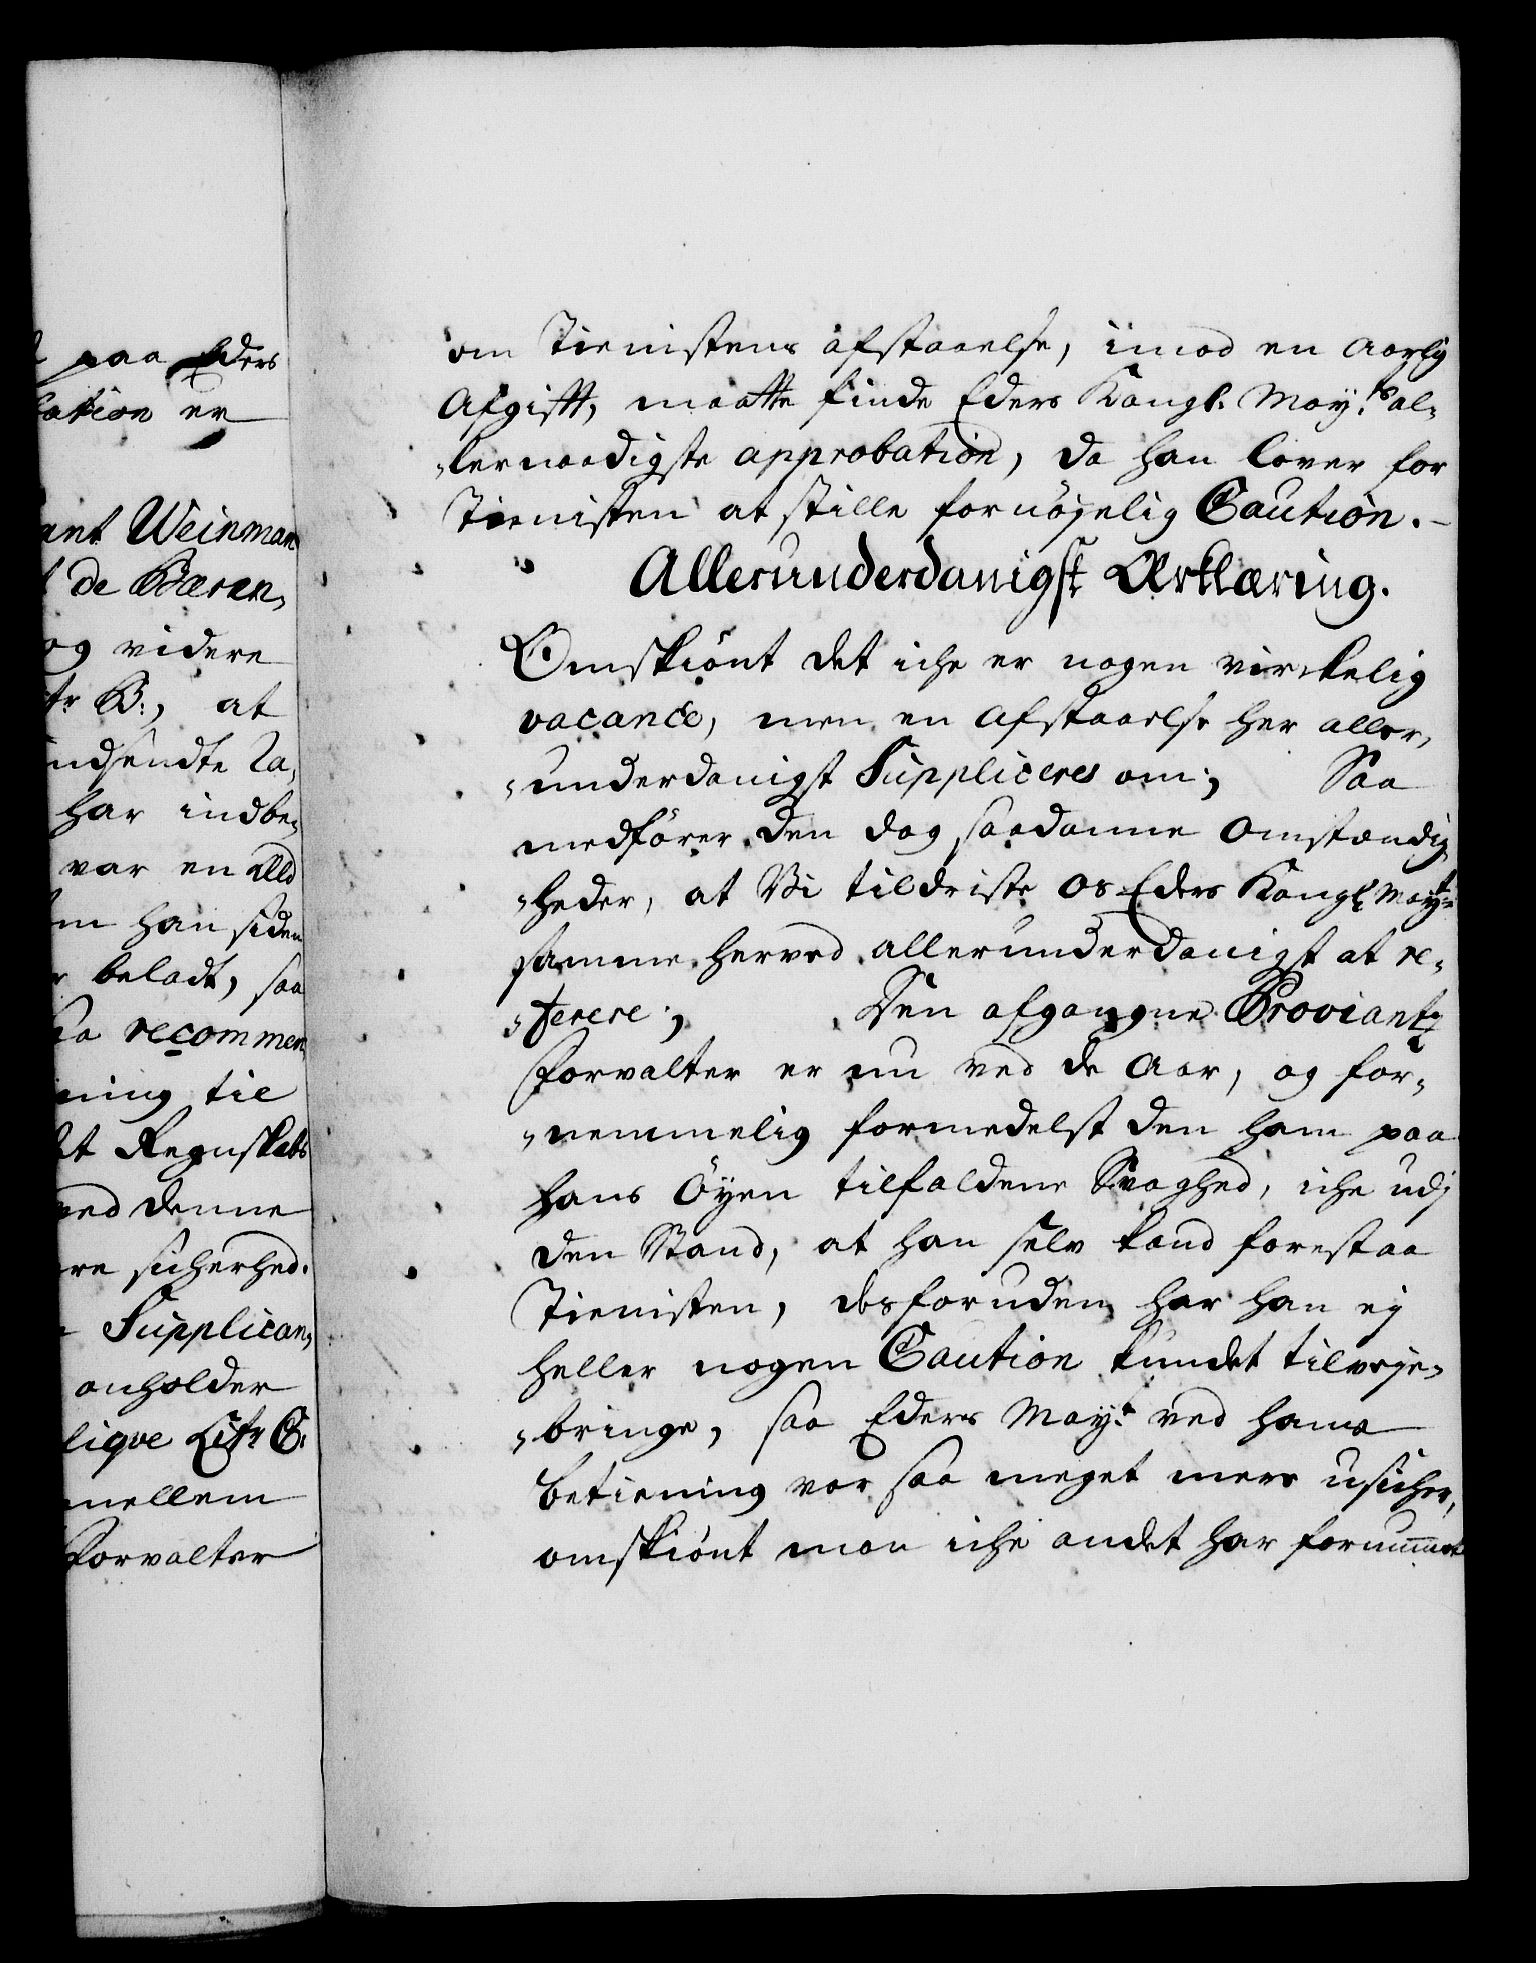 paa Eders
cation er
ant Weinman
de Bæren,
og videre
tr B:, at
indsendte Ta,
har indbe,
var en alld
han siden
beladt, saa
recommen,
ning til
Regnskabs
ved denne
re sicherhed.
Supplican,
anholder
lique Litr C.
mellem
Forvalter
om Tienistens afstaaelse, imod en aarlig
Afgifft, maatte finde Eders Kongl. May.ts al,
,lernaadigste approbation, da han lover for
Tienisten at stille fornøyelig Caution.-
Allerunderdanigst Erklæring.
Omskiönt det iche er nogen virckelig
vacance, men en afstaaelse her aller,
,underdanigst Suppliceres om; Saa
medfører den dog saadanne omstændig,
,heder, at Vi tildriste os Eders Kongl. May.t
samme herved allerunderdanigst at re,
,ferere; Den afgangne Proviant,
Forvalter er nu ved de Aar, og for,
,nemmelig formedelst den ham paa
hans Öyen tilfaldene Svaghed, iche udj
den Stand, at han selv kand forestaa
Tienisten, desforuden har han ej
heller nogen Caution kundet tilveye,
,bringe, saa Eders May.t ved hans
betiening var saa meget meere usicher,
omskiönt man iche andet har fornummet